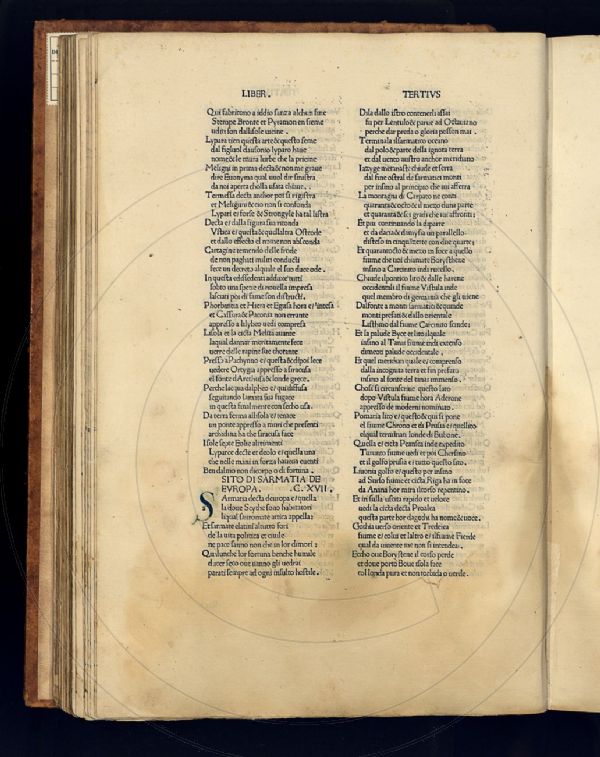 LIBER.
TERTIVS
Qui fabricono a iddio suncta alchun sine
Sterope Bronte et Pyramon en sieme
udisi son dallisole uicine.
Lypara tien questa arte & questo seme
dal figluol dausonio lyparo hiue
nome & le misura lurbe che la pricine
Meligni in prima decta & non me graue
dire Euonyma qual uuol dir sinistra
da noi aperta cholla usata chiaue.
Termessa decta anchor poi si registra
et Meliguni & cio non si confonda
Lypari e/ forse & Strongyle ha tal listra
Decta e/ dalla figura sua ritonda
Vstica e/ questa & quellaltra Osteode
et dallo effecto el nome non absconda
Cartagine temendo delle frode
de non paghati militi conducti
fece un decreto alquale el suo duce ode.
In questa edissedenti adduce muti
sobto una specie di nouella impresa
lasciati poi di fame son distructi.
Phorbantia et Hiera et Egusa hora e/ intesa
et Cassura & Paconia non errante
appresso a lilybeo uedi compresa
Lisola et la cicta Melita auante
laqual dannar meritamente fece
uerre delle rapine sue chotante
Presso a Pachynno e/ questa & dipoi lece
uedere Ortygia appresso a siracusa
el fonte d Arethusa & londe grece.
Perche lacqua dalpheo e/ qui diffusa
seguitando lamata sua fugace
in questa finalmente con serbo usa.
Da terra ferma allisola e/ tenace
un ponte appresso a muni che presenti
archadina ha che siracusa face
Isole septe Eolie altrimenti
Lyparee decte et deolo e/ quella una
che nelle mani in forza haueua euenti
Ben dal mio non discorpo o di fortuna.
SITO DI SARMATIA DE
EVROPA. C. XVII.
Sarmatia decta deuropa e/ quella
la doue Scythe sono habitatori
la qual sauromate attica appella:
Et sarmate elatini al nostro fori
de la uita politica et ciuile
ne pace sanno non che in lor dimori:
Qualunche lor fortuna benche humile
dacer seco oue uanno gli uedrai
parati sempre ad ogni insulto hostile.
Disa dallo istro contenersi assai
fu per Lentulo & parue ad Octauiano
perche dar preda o gloria possen mai.
Termina la il sarmatico oceano
dal polo & parte della ignota terra
et dal uenco austro anchor meridiano
Iazyge metanaste chiude et serra
dal fine ostral de sarmatici monti
per insino al principio che ui afferra
La montagna di Carpato ne conta
quaranta & octo & il mezo duna parte
et quaranta & sei gradi che ui affronti:
Et piu continuando la diparte
et da dacia & di mysia un parallello
disteso in cinquisette con due quarte:
Et quaranta octo & mezo in foce a quello
fiume che noi chiamate Borysthene
insino a Carcinito indi nouello.
Chiude il pontico liro & dalle harene
occidentali il fiume Vistula inde
quel membro di germania che gli uiene
Dal fonte a monti sarmatici & quinde
monti presati & dallo orientale
Listhmo dal fiume Carcinito scende:
Et la palude Byce et lito iquale
insino al Tanai fiume indi extenso
dimeoti palude occidentale.
Et quel meridian quale e/ compreso
dalla incognita terra et fin presato
insino al fonte del tanai immenso.
Chosi si circunscriue questo lato
dopo Vistula fiume hora Aderone
appresso de moderni nominato.
Pomaria lito e/ questo & qui si pone
el fiume Chrono et di Prusia e/ quel lito
el qual terminan londe di Bubone.
Quella e/ cicta Peansta indi expedito
Turunto fiume uedi et poi Chersino
et il golfo prusia e/ tutto questo sito.
Liuonia golfo e/ questo per insino
ad Surlo fiume et cicta Riga ha in foce
da Anana hor mira il torto repentino.
Et in sulla uscita rapido et ueloce
uedi la cicta decta Proalea
questa parte hor dagedu ha nome & uoce.
Gothia uerso oriente et Tredeica
fiume e/ colui et laltro e/ il fiume Fiende
qual da uniente me non si intendea.
Eccho oue Borysthene il corso perde
et doue porto Boue isola face
col londa pura et non torbida o uerde.